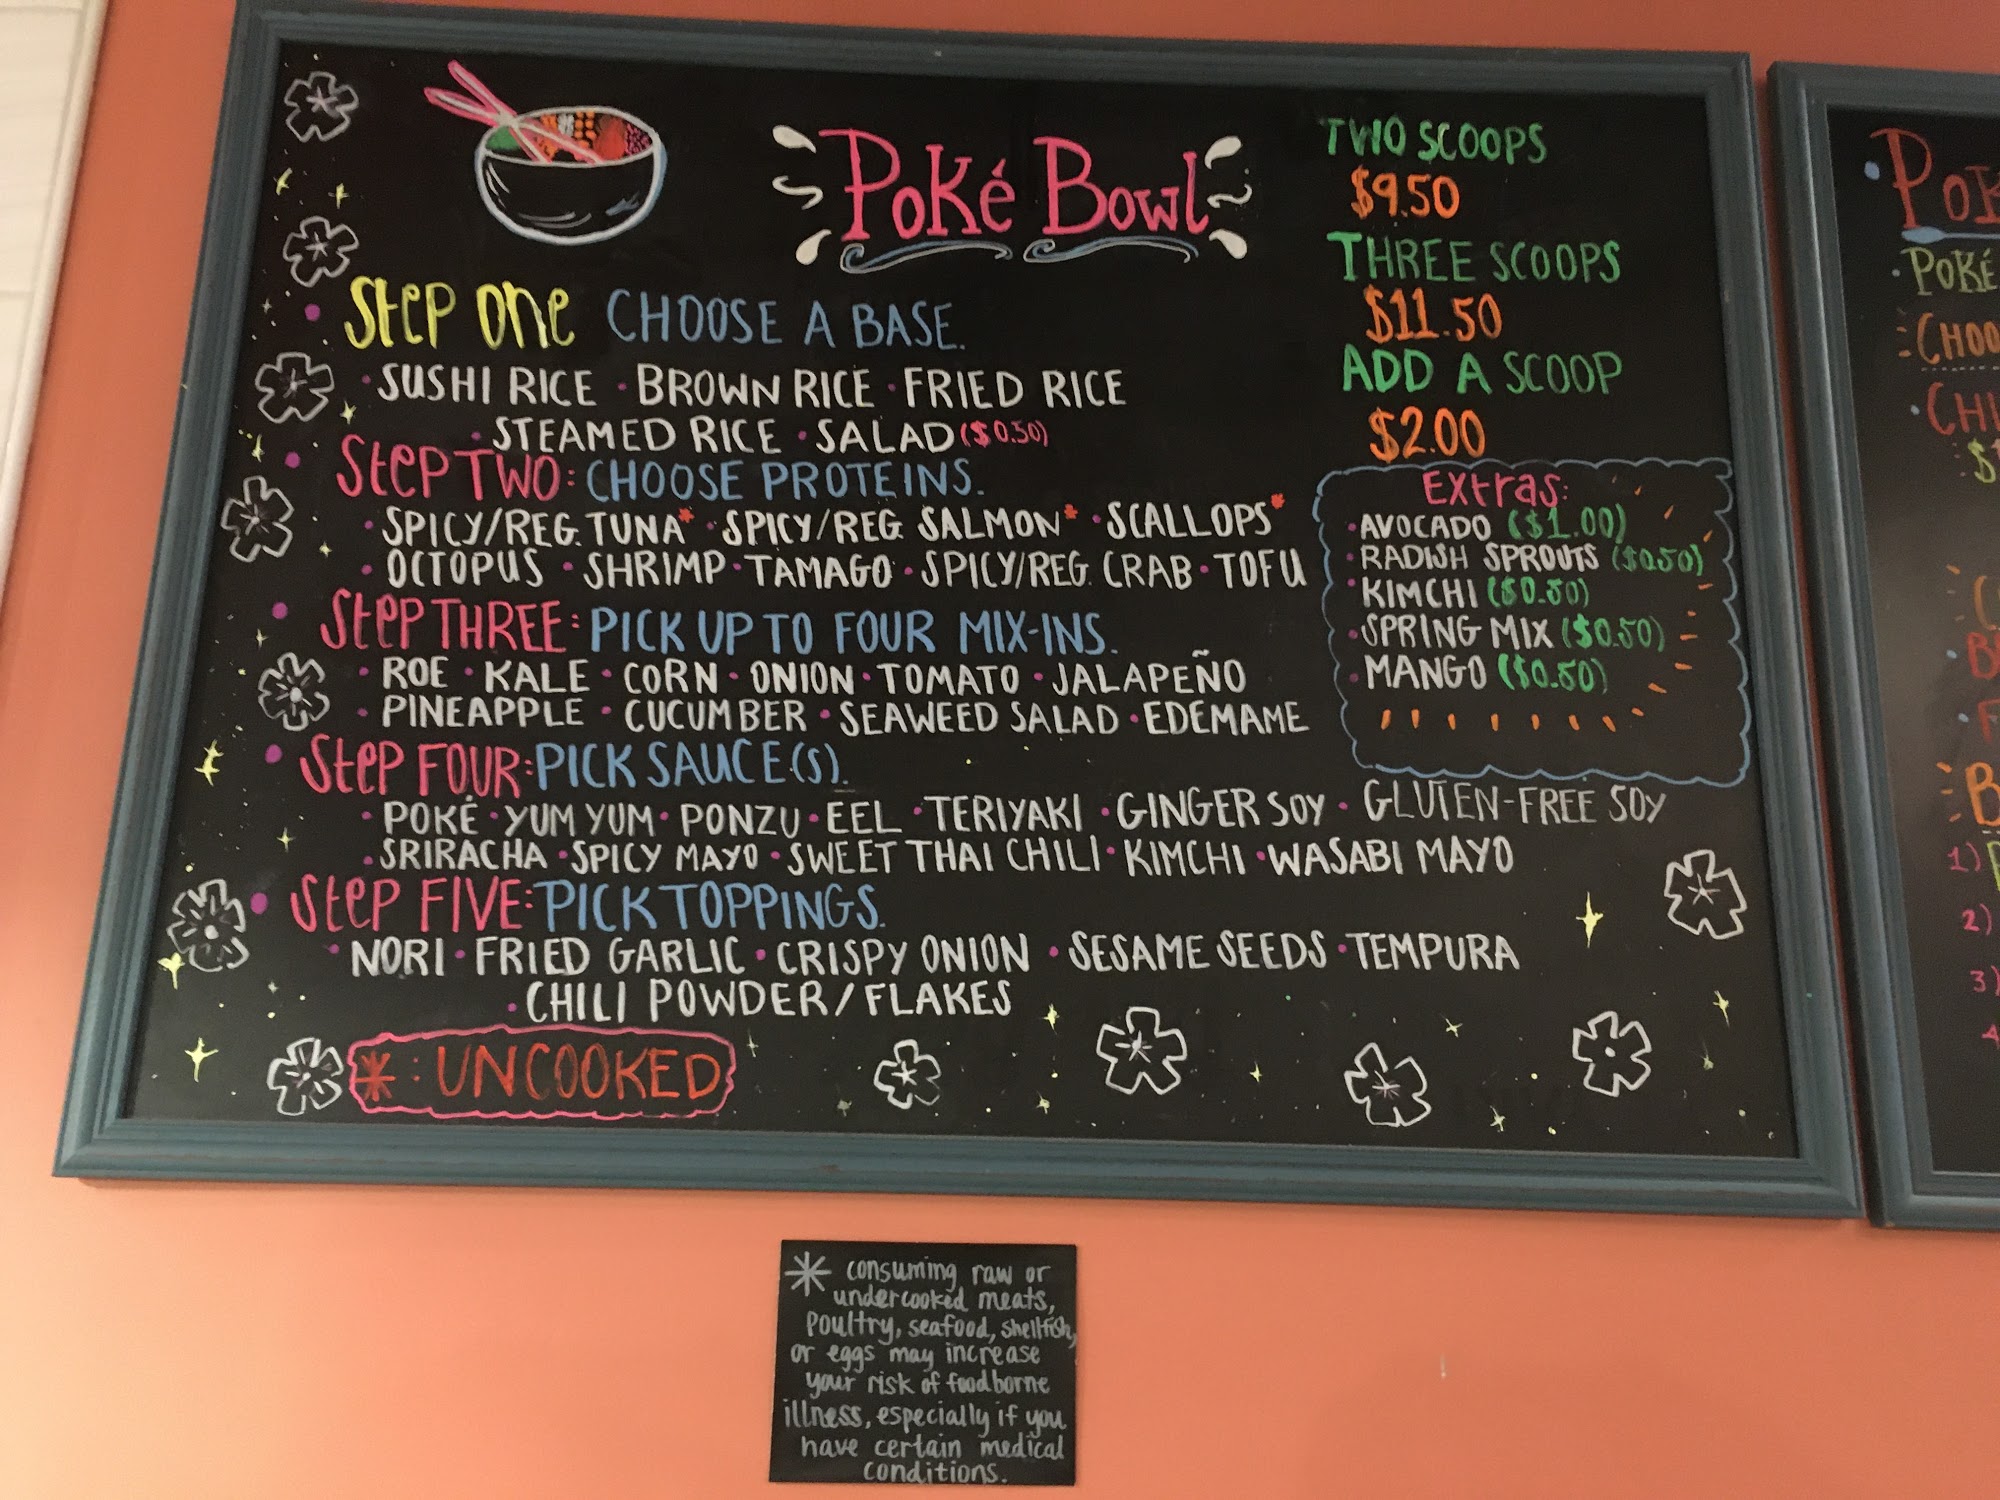 Poké Bowl
TWO SCOOPS
$9.50
THREE SCOOPS
$11.50
ADD A SCOOP
$2.00
Step One CHOOSE A BASE.
• SUSHI RICE • BROWN RICE • FRIED RICE
• STEAMED RICE • SALAD ($0.50)
Step TWO: CHOOSE PROTEINS.
• SPICY/REG. TUNA* • SPICY/REG. SALMON* • SCALLOPS*
• OCTOPUS • SHRIMP • TAMAGO • SPICY/REG. CRAB • TOFU
Step THREE: PICK UP TO FOUR MIX-INS.
• ROE • KALE • CORN • ONION • TOMATO • JALAPEÑO
• PINEAPPLE • CUCUMBER • SEAWEED SALAD • EDEMAME
Step FOUR: PICK SAUCE(S).
• POKÉ • YUM YUM • PONZU • EEL • TERIYAKI • GINGER SOY • GLUTEN-FREE SOY
• SRIRACHA • SPICY MAYO • SWEET THAI CHILI • KIMCHI • WASABI MAYO
Step FIVE: PICK TOPPINGS.
• NORI • FRIED GARLIC • CRISPY ONION • SESAME SEEDS • TEMPURA
• CHILI POWDER/FLAKES
* : UNCOOKED
Extras:
• AVOCADO ($1.00)
• RADISH SPROUTS ($0.50)
• KIMCHI ($0.50)
• SPRING MIX ($0.50)
• MANGO ($0.50)
POKÉ
1)
2)
3)
* consuming raw or
undercooked meats,
poultry, seafood, shellfish,
or eggs may increase
your risk of foodborne
illness, especially if you
have certain medical
conditions.